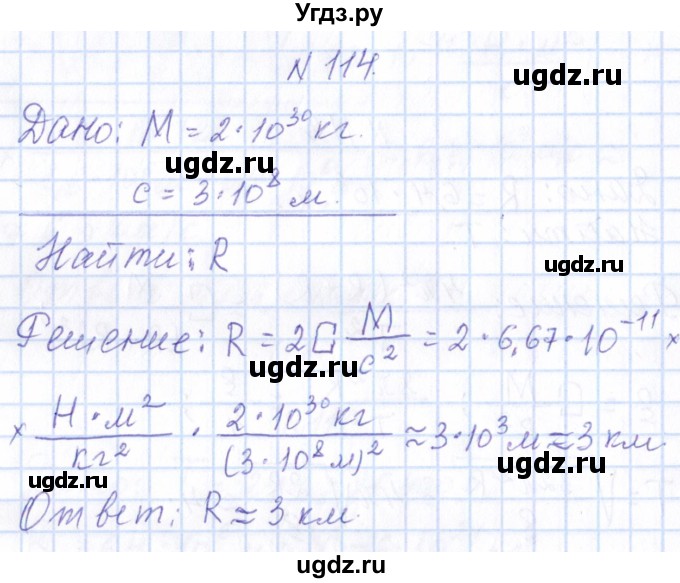 Угдз.ру
N 114.
ugdz.ru
Дано: M = 2·10³⁰ кг.
ugdz.ru
c = 3·10⁸ м.
Найти: R
ugdz.ru
Решение: R = 2G M/c² = 2·6,67·10⁻¹¹ ×
ugdz.ru
× Н·м²/кг² · 2·10³⁰ кг/(3·10⁸ м)² ≈ 3·10³ м ≈ 3 км.
ugdz.ru
ugdz.ru
Ответ: R ≈ 3 км.
ugdz.ru